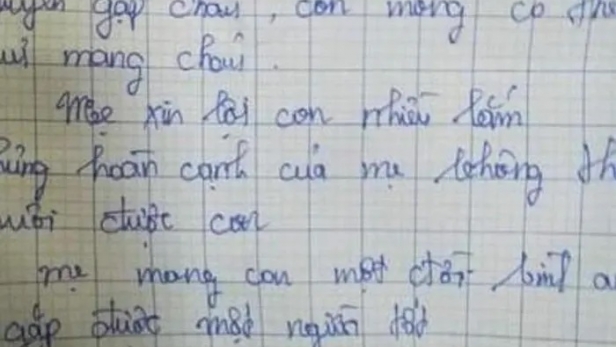 gặp cháu, còn mong có
mạng cháu.
Mẹ xin lỗi con nhiều lắm
hoàn cạnh của mẹ không th
được con
mẹ mong con một đời bình a
gặp được một người tốt